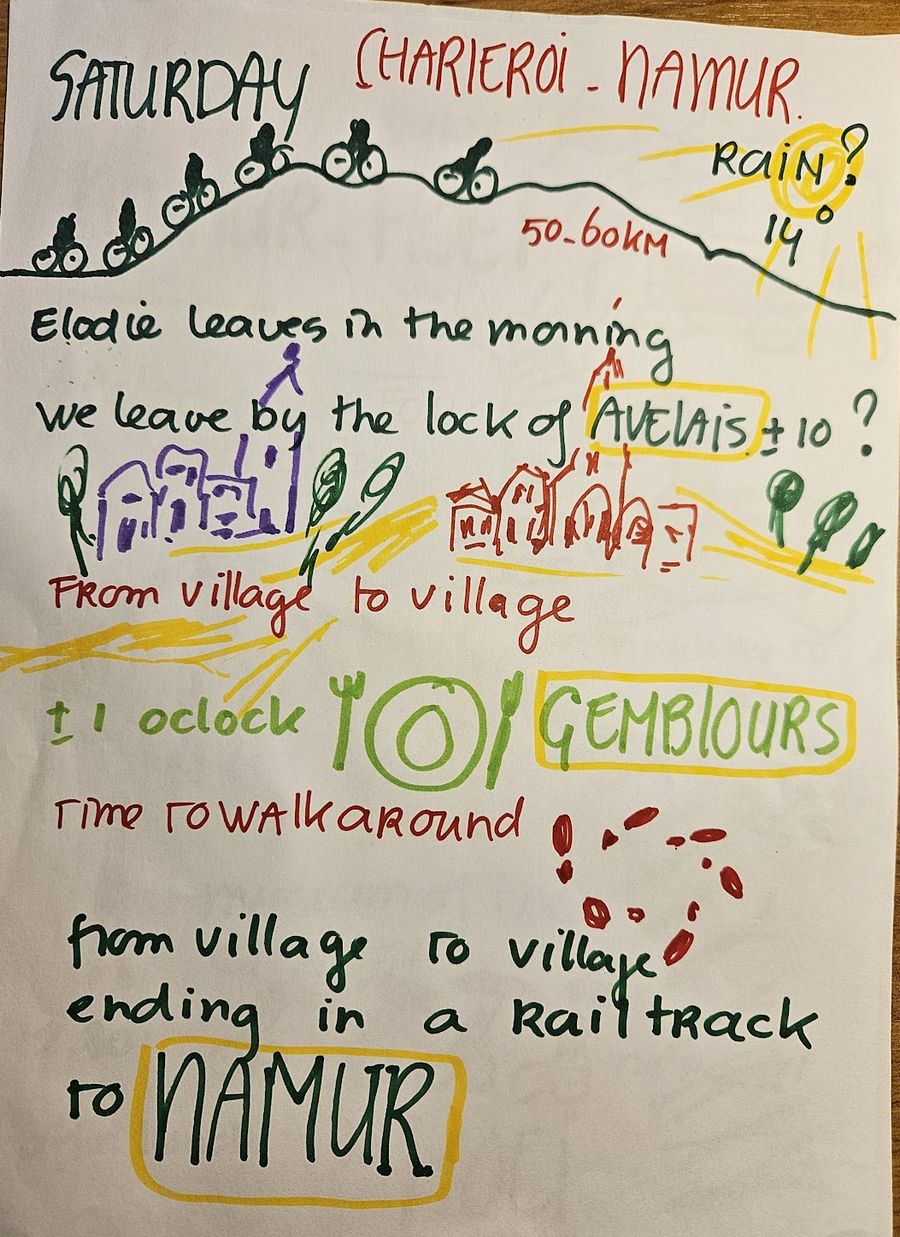 SATURDAY CHARLEROI - NAMUR.
RAIN?
14°
50-60KM
Elodie leaves in the morning
we leave by the lock of AVELAIS ± 10 ?
FROM village to village
± 1 oclock GEMBLOURS
Time TO WALK AROUND
from village to village
ending in a Rail tRack
to NAMUR